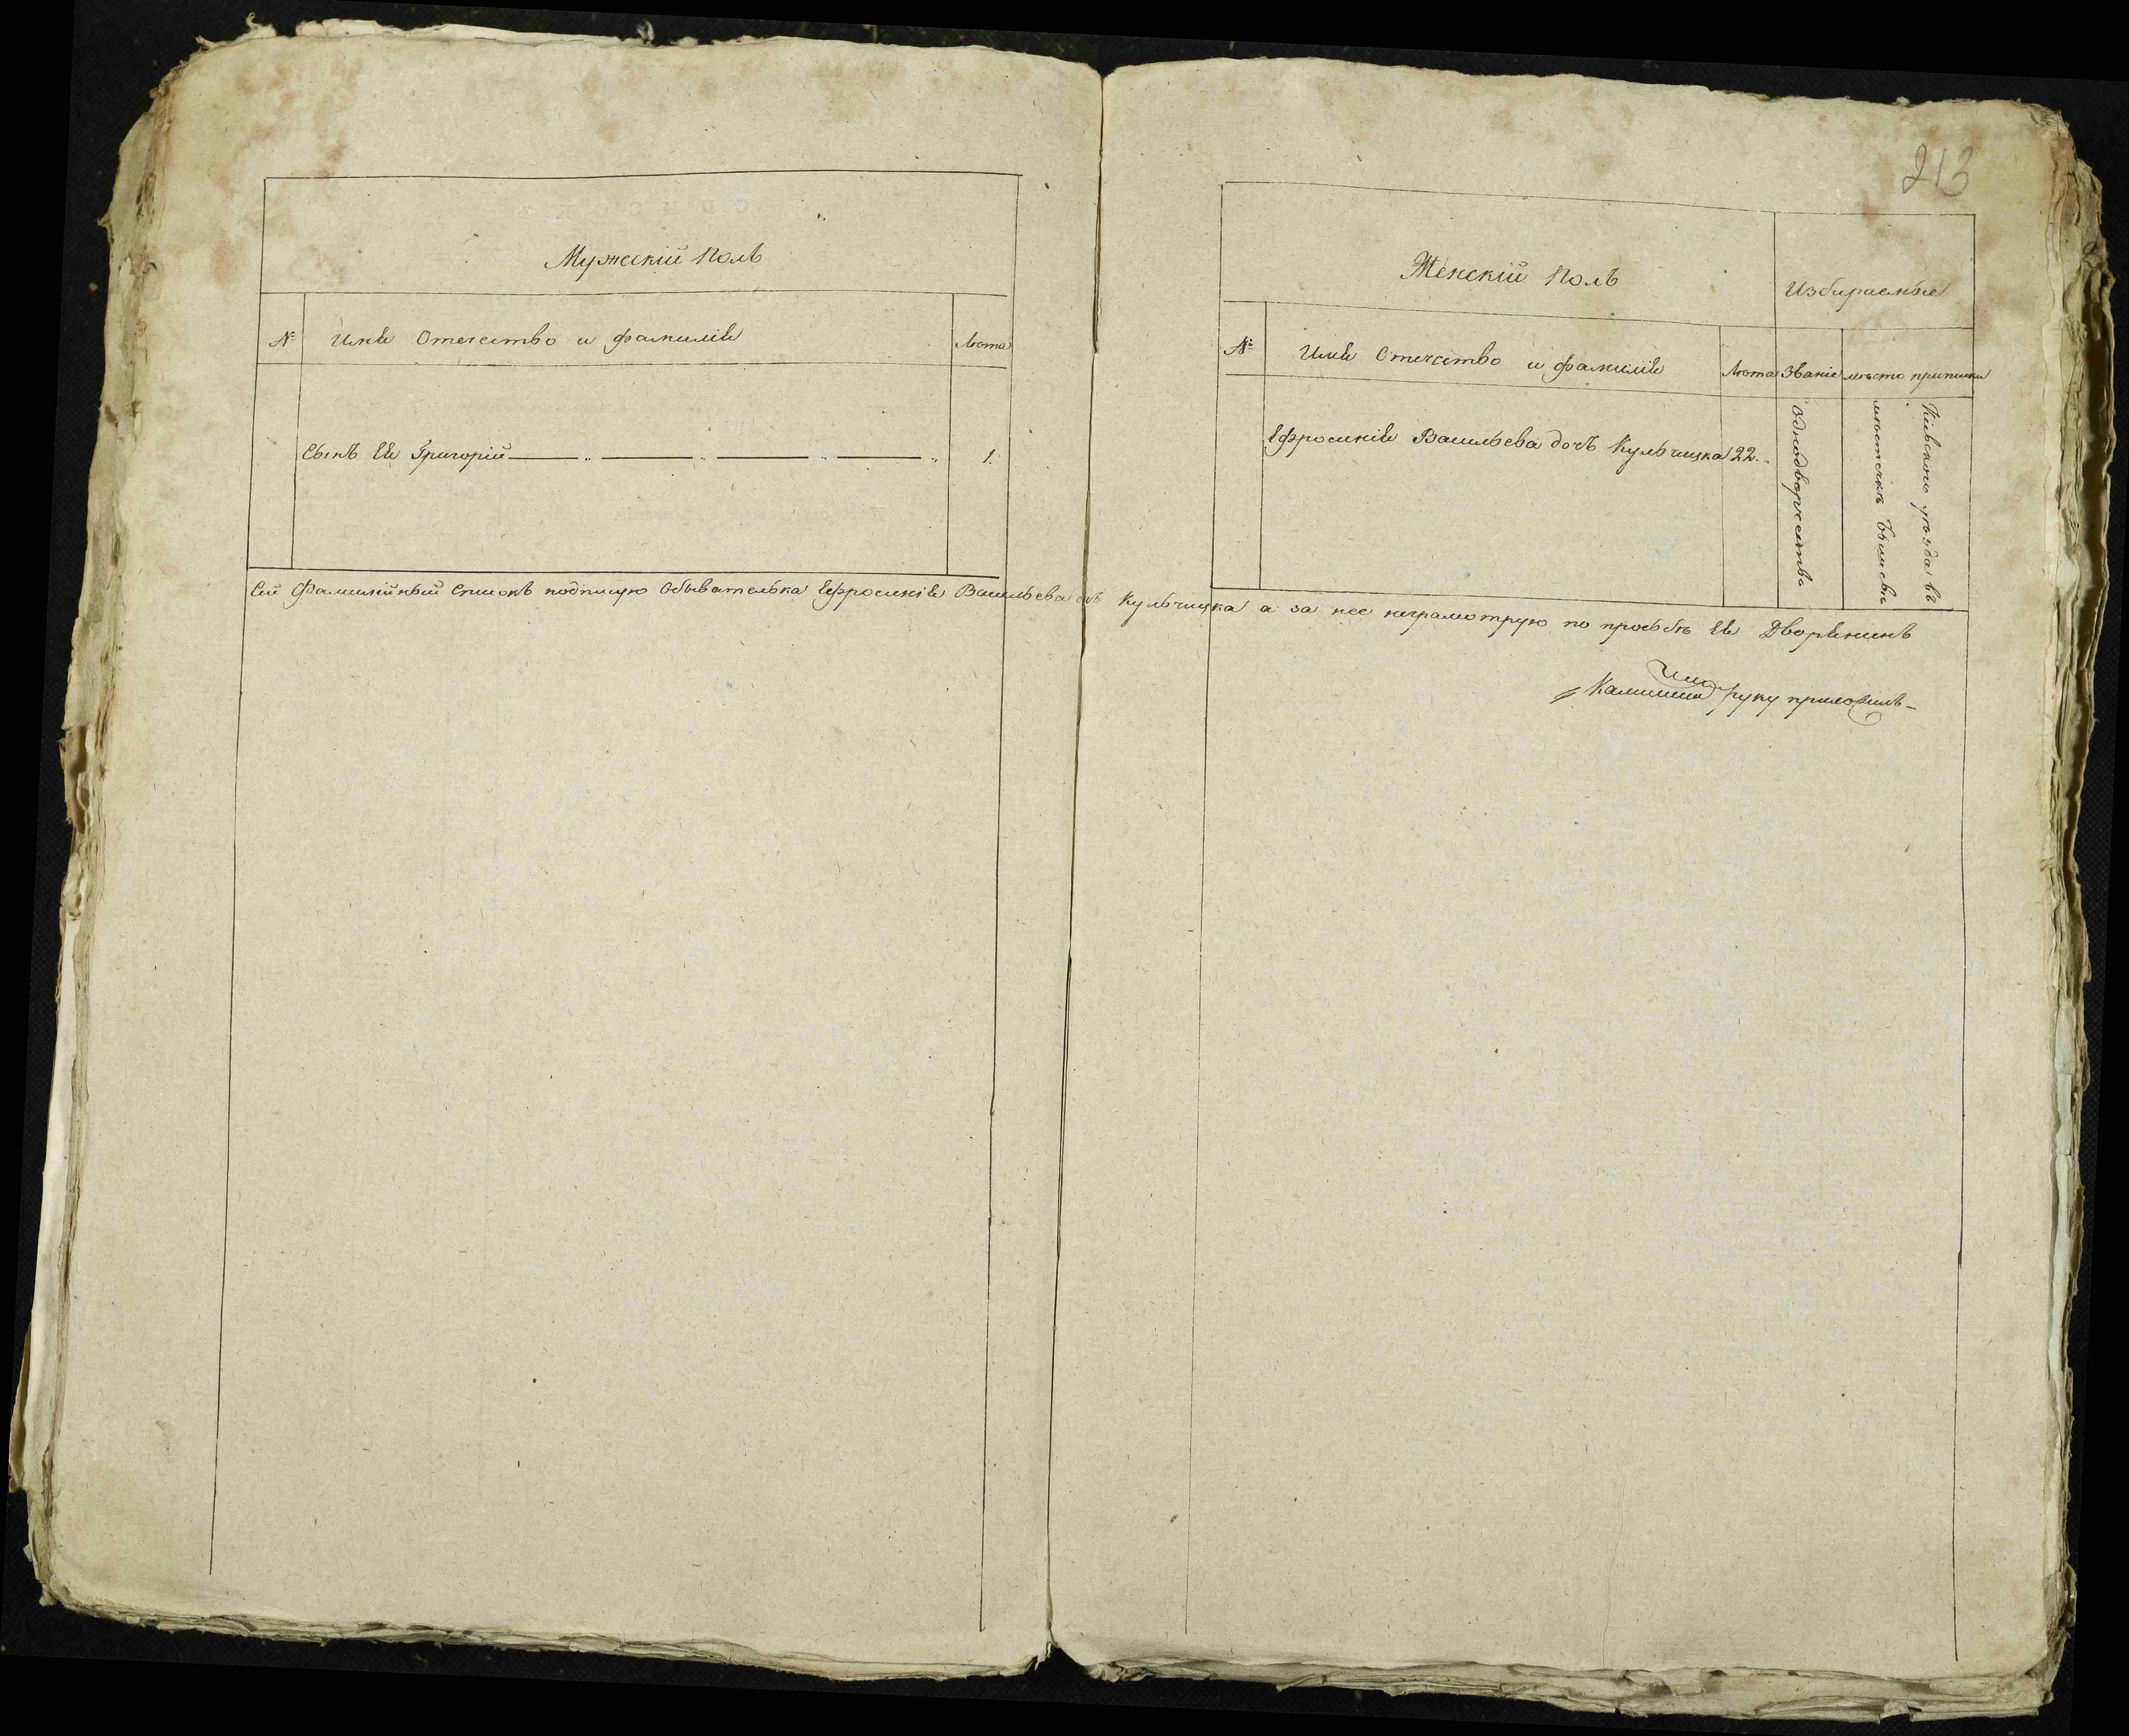 Мужескій полъ
№ Имя Отечество и фамилія Лѣта
Сынъ Ея Григорій 1.
213
Женскій полъ Избираемые
№ Имя Отечество и фамилія Лѣта Званіе мѣсто приписки
Ефросинія Васильева дочь Кульчицка 22.
Однодворчества
Кіевского уѣзда въ
мѣстечкѣ
Сій Фамилійный списокъ подписую Обывателька Ефросинія Васильева дчъ Кульчицка а за нее неграмотную по просьбѣ Ея Дворянинъ
руку приложилъ